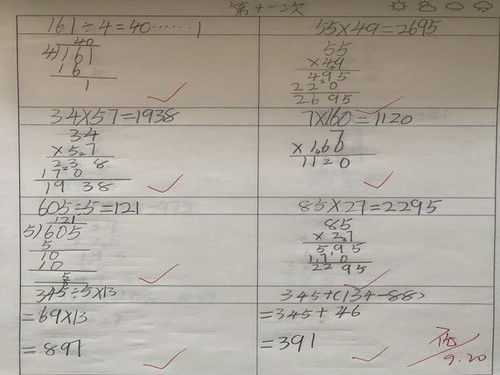 第十一次
161÷4=40……1
40
4)161
16
1
55×49=2695
55
×49
495
220
2695
34×57=1938
34
×57
238
170
1938
7×160=1120
7
×160
1120
605÷5=121
121
5)605
5
10
10
5
85×27=2295
85
×27
595
170
2295
345÷5×13
=69×13
=897
345+(134-88)
=345+46
=391
9.20